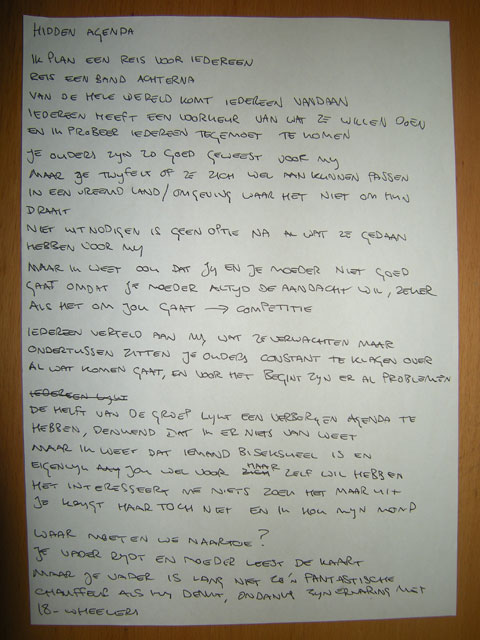 HIDDEN AGENDA
IK PLAN EEN REIS VOOR IEDEREEN
REIS EEN BAND ACHTERNA
VAN DE HELE WERELD KOMT IEDEREEN VANDAAN
IEDEREEN HEEFT EEN VOORKEUR VAN WAT ZE WILLEN DOEN
EN IK PROBEER IEDEREEN TEGEMOET TE KOMEN
JE OUDERS ZIJN ZO GOED GEWEEST VOOR MIJ
MAAR JE TWIJFELT OF ZE ZICH WEL AAN KUNNEN PASSEN
IN EEN VREEMD LAND/OMGEVING WAAR HET NIET OM HUN
DRAAIT
NIET UITNODIGEN IS GEEN OPTIE NA AL WAT ZE GEDAAN
HEBBEN VOOR MIJ
MAAR IK WEET OOK DAT JIJ EN JE MOEDER NIET GOED
GAAT OMDAT JE MOEDER ALTIJD DE AANDACHT WIL, ZEKER
ALS HET OM JOU GAAT → COMPETITIE
IEDEREEN VERTELD AAN MIJ WAT ZE VERWACHTEN MAAR
ONDERTUSSEN ZITTEN JE OUDERS CONSTANT TE KLAGEN OVER
AL WAT KOMEN GAAT, EN VOOR HET BEGINT ZIJN ER AL PROBLEMEN
IEDEREEN LIJKT
DE HELFT VAN DE GROEP LIJKT EEN VERBORGEN AGENDA TE
HEBBEN, DENKEND DAT IK ER NIETS VAN WEET
MAAR IK WEET DAT IEMAND BISEKSUEEL IS EN
EIGENLIJK JOU WEL VOOR HAAR ZELF WIL HEBBEN
HET INTERESSEERT ME NIETS ZOEK HET MAAR UIT
JE KRIJGT HAAR TOCH NIET EN IK HOU MIJN MOND
WAAR MOETEN WE NAARTOE?
JE VADER RIJDT EN MOEDER LEEST DE KAART
MAAR JE VADER IS LANG NIET ZO'N FANTASTISCHE
CHAUFFEUR ALS HIJ DENKT, ONDANKS ZIJN ERVARING MET
18-WHEELERS